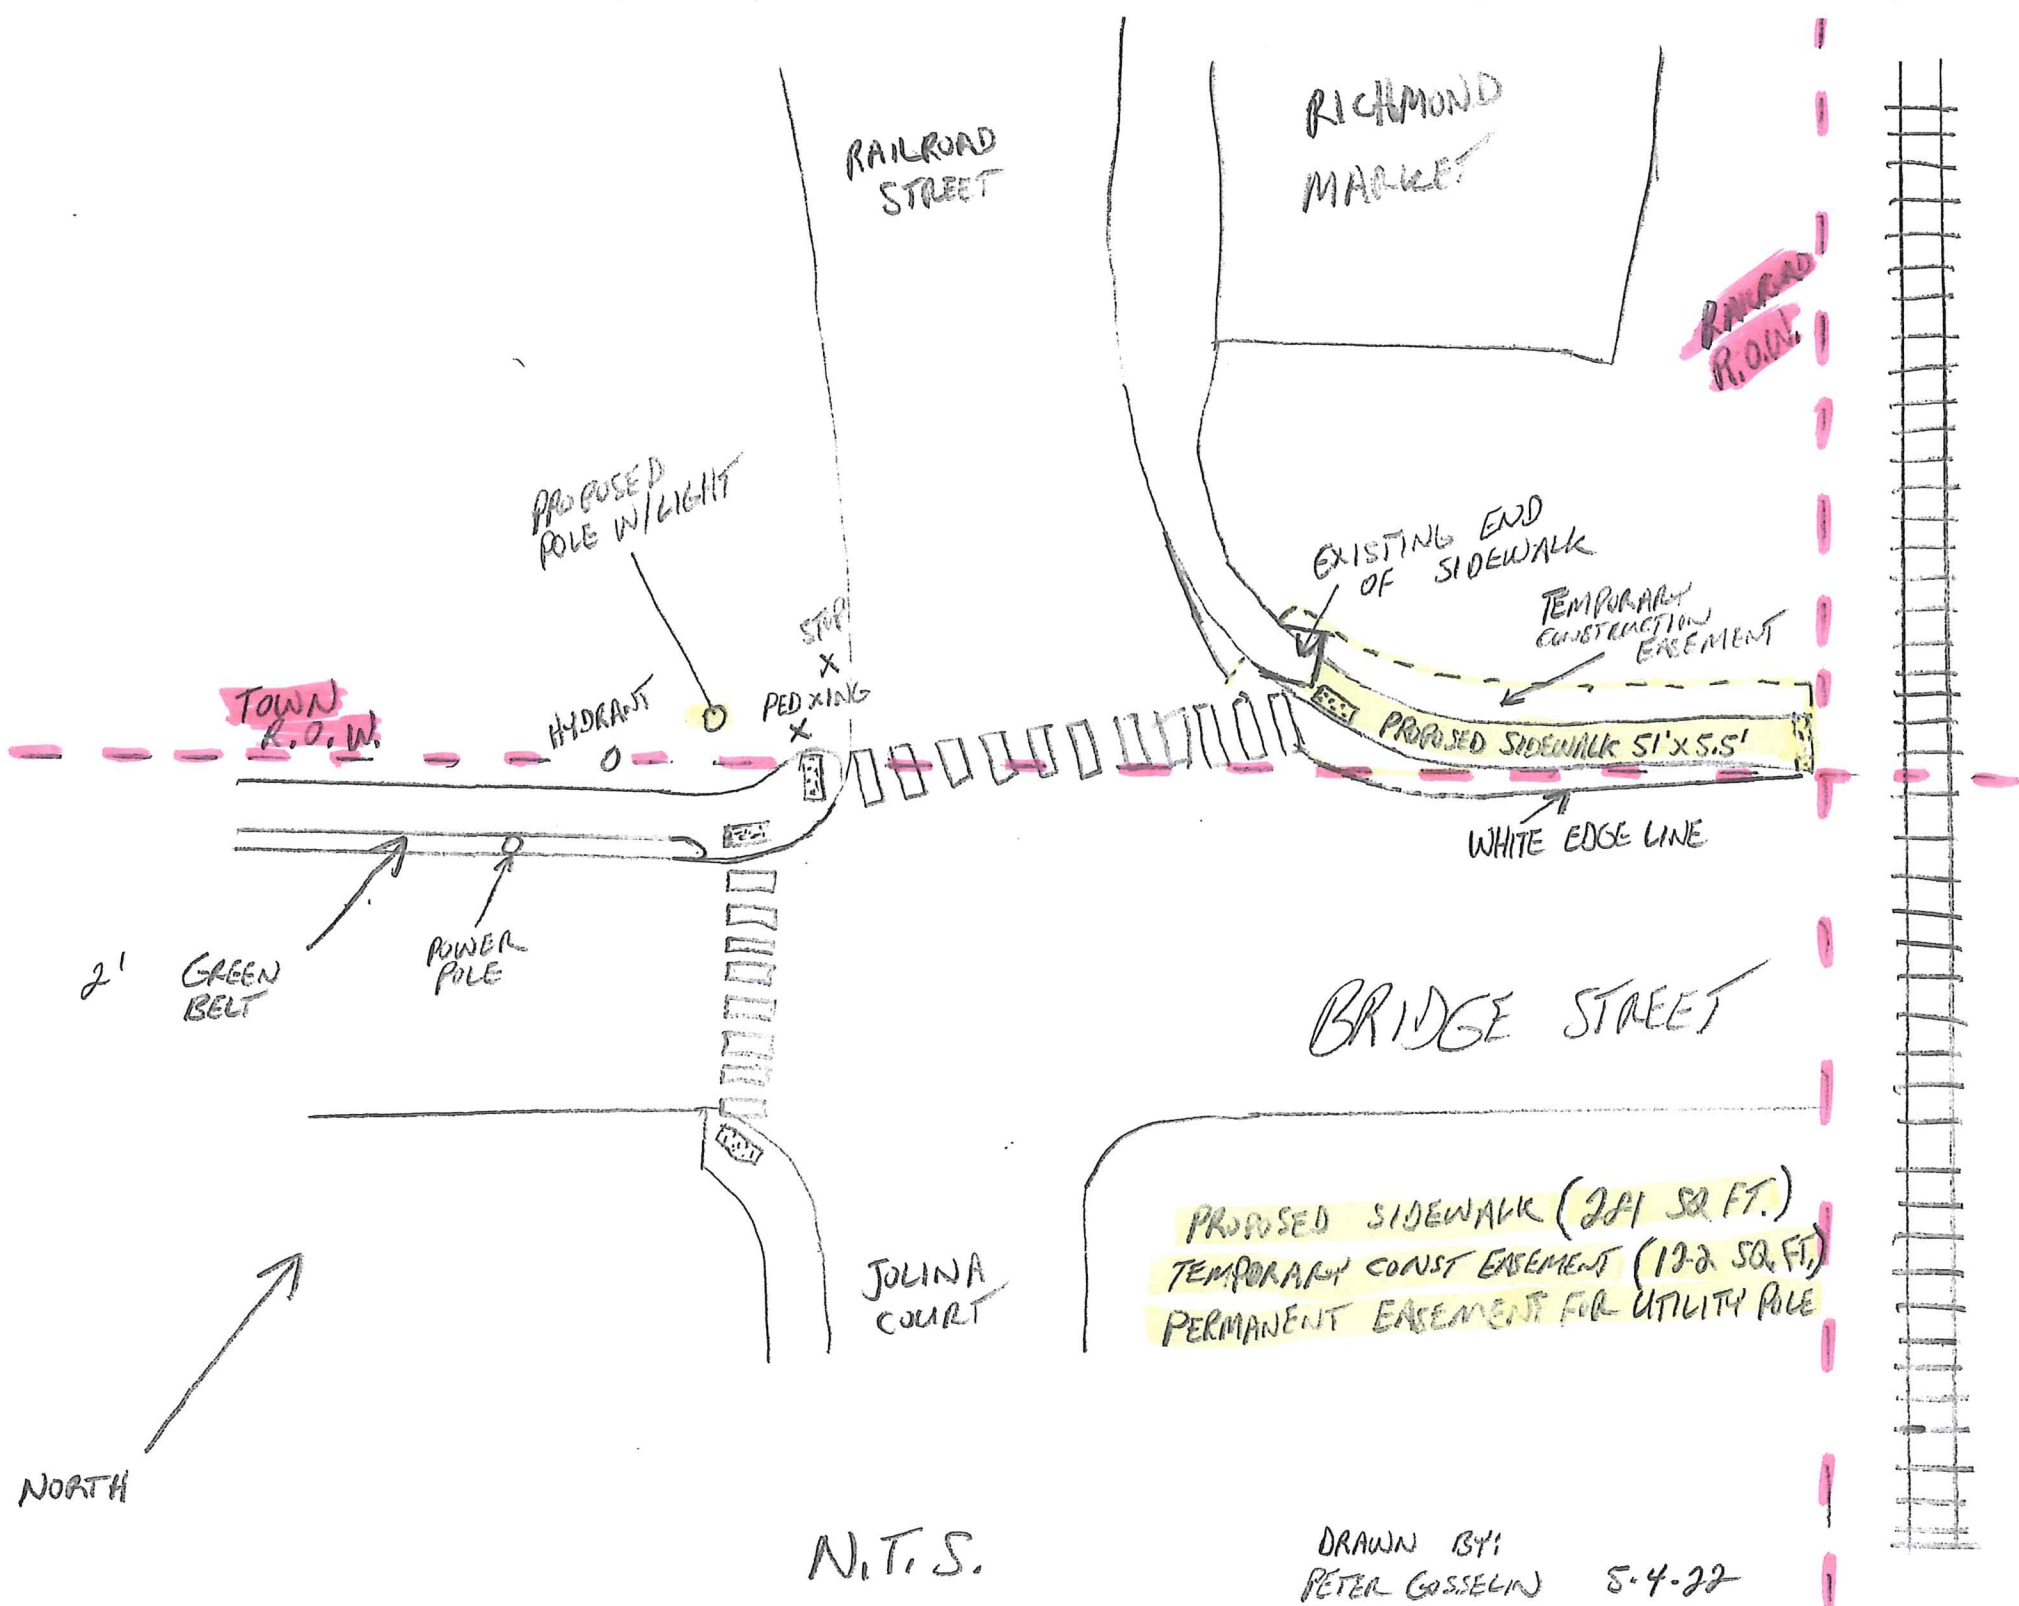 RAILROAD
STREET
RICHMOND
MARKET
RAILROAD
R.O.W.
PROPOSED
POLE W/LIGHT
EXISTING END
OF SIDEWALK
TEMPORARY
CONSTRUCTION
EASEMENT
STOP
X
PED XING
X
TOWN
R.O.W.
HYDRANT
PROPOSED SIDEWALK 51'X5.5'
WHITE EDGE LINE
2' GREEN
BELT
POWER
POLE
BRIDGE STREET
PROPOSED SIDEWALK (281 SQ FT.)
TEMPORARY CONST EASEMENT (122 SQ.FT.)
PERMANENT EASEMENT FOR UTILITY POLE
JOLINA
COURT
NORTH
N.T.S.
DRAWN BY:
PETER GOSSELIN 5-4-22